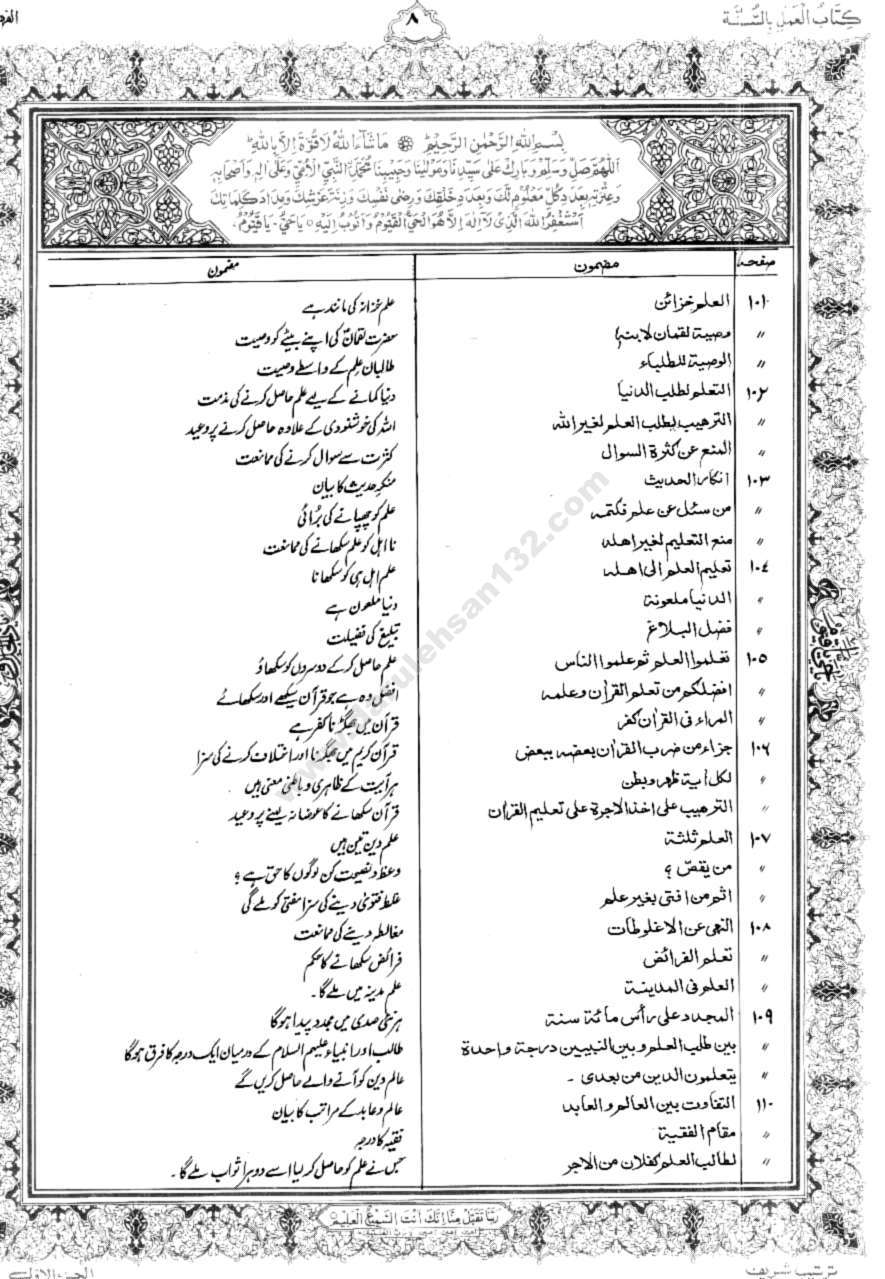 كِتَابُ الْعَمَلِ بِالسُّنَّةِ ٨
بِسْمِ اللهِ الرَّحْمٰنِ الرَّحِيْمِ ۞ مَا شَآءَ اللهُ لَا قُوَّةَ اِلَّا بِاللهِ
اَللّٰهُمَّ صَلِّ وَسَلِّمْ وَبَارِكْ عَلٰى سَيِّدِنَا وَمَوْلٰينَا وَحَبِيْبِنَا مُحَمَّدِنِ النَّبِيِّ الْاُمِّيِّ وَعَلٰى اٰلِهٖ وَاَصْحَابِهٖ
وَعِتْرَتِهٖ بِعَدَدِ كُلِّ مَعْلُوْمٍ لَّكَ وَبِعَدَدِ خَلْقِكَ وَرِضٰى نَفْسِكَ وَزِنَةِ عَرْشِكَ وَمِدَادِ كَلِمَاتِكَ
اَسْتَغْفِرُ اللهَ الَّذِيْ لَآ اِلٰهَ اِلَّا هُوَ الْحَيُّ الْقَيُّوْمُ وَاَتُوْبُ اِلَيْهِ يَا حَيُّ۔ يَا قَيُّوْمُ۔
صفحہ مضمون مضمون
١٠١ العلم خزائن علم خزانہ کی مانند ہے
〃 وصية لقمان لابنه حضرت لقمانؑ کی اپنے بیٹے کو وصیت
〃 الوصية للطلباء طالبان علم کے واسطے وصیت
١٠٢ التعلم لطلب الدنيا دنیا کمانے کے لیے علم حاصل کرنے کی مذمت
〃 الترهيب لطلب العلم لغير الله اللہ کی خوشنودی کے علاوہ حاصل کرنے پر وعید
〃 المنع عن كثرة السوال کثرت سے سوال کرنے کی ممانعت
١٠٣ انكار الحديث منکرِ حدیث کا بیان
〃 من سئل عن علم فكتمه علم کو چھپانے کی بُرائی
〃 منع التعليم لغير اهله نااہل کو علم سکھانے کی ممانعت
١٠٤ تعليم العلم الى اهله علم اہل ہی کو سکھانا
〃 الدنيا ملعونة دنیا ملعون ہے
〃 فضل البلاغ تبلیغ کی فضیلت
١٠٥ تعلموا العلم ثم علموا الناس علم حاصل کر کے دوسروں کو سکھاؤ
〃 افضلكم من تعلم القرآن وعلمه افضل وہ ہے جو قرآن سیکھے اور سکھائے
〃 المراء فى القرآن كفر قرآن میں جھگڑنا کفر ہے
١٠٦ جزاء من ضرب القرآن بعضه ببعض قرآن کریم میں جھگڑنا اور اختلاف کرنے کی سزا
〃 لكل آية ظهر وبطن ہر آیت کے ظاہری و باطنی معنی ہیں
〃 الترهيب على اخذ الاجرة على تعليم القرآن قرآن سکھانے کا عوضانہ لینے پر وعید
١٠٧ العلم ثلثة علم دین تین ہیں
〃 من يقصّ ؟ وعظ و نصیحت کن لوگوں کا حق ہے ؟
〃 اثم من افتى بغير علم غلط فتویٰ دینے کی سزا مفتی کو ملے گی
١٠٨ النهى عن الاغلوطات مغالطہ دینے کی ممانعت
〃 تعلم الفرائض فرائض سکھانے کا حکم
〃 العلم فى المدينة علم مدینہ میں ملے گا۔
١٠٩ المجدد على رأس مائة سنة ہر نئی صدی میں مجدد پیدا ہوگا
〃 بين طلب العلم و بين النبيين درجة واحدة طالب اور انبیاء علیہم السلام کے درمیان ایک درجہ کا فرق ہوگا
〃 يتعلمون الدين من بعدى ۔ عالم دین کو آنے والے حاصل کریں گے
١١٠ التفاوت بين العالم والعابد عالم و عابد کے مراتب کا بیان
〃 مقام الفقية فقیہ کا درجہ
〃 لطالب العلم كفلان من الاجر جس نے علم کو حاصل کر لیا اسے دوہرا ثواب ملے گا۔
رَبَّنَا تَقَبَّلْ مِنَّا اِنَّكَ اَنْتَ السَّمِيْعُ الْعَلِيْمُ
ترتیب شریف الجزء الاول